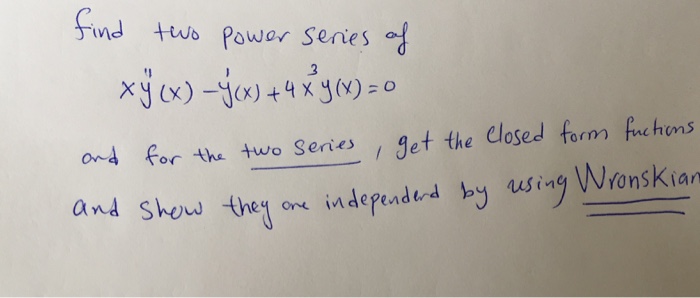 find two power series of
xy''(x) - y'(x) + 4x³y(x) = 0
and for the two series, get the closed form fuctions
and show they are independend by using Wronskian